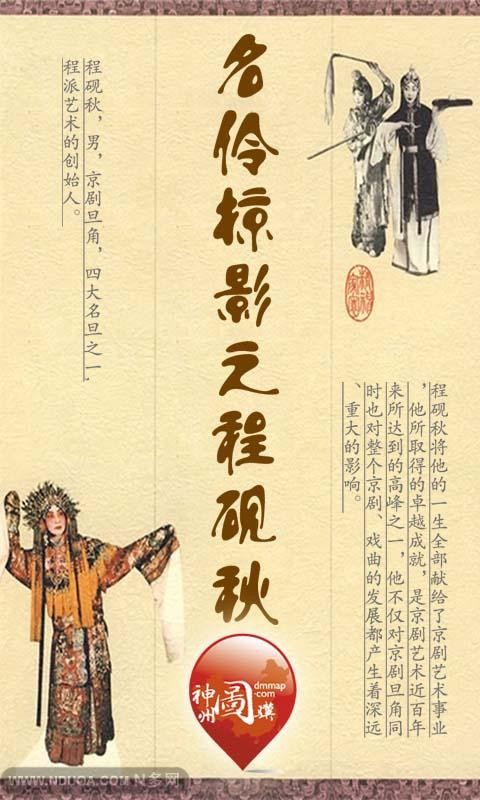 名伶掠影之程砚秋
程砚秋，男，京剧旦角，四大名旦之一,
程派艺术的创始人。
程砚秋将他的一生全部献给了京剧艺术事业
，他所取得的卓越成就，是京剧艺术近百年
来所达到的高峰之一，他不仅对京剧旦角同
时也对整个京剧、戏曲的发展都产生着深远
、重大的影响。
dmmap
.com
神州圖骥
WWW.NDUOA.COM N多网